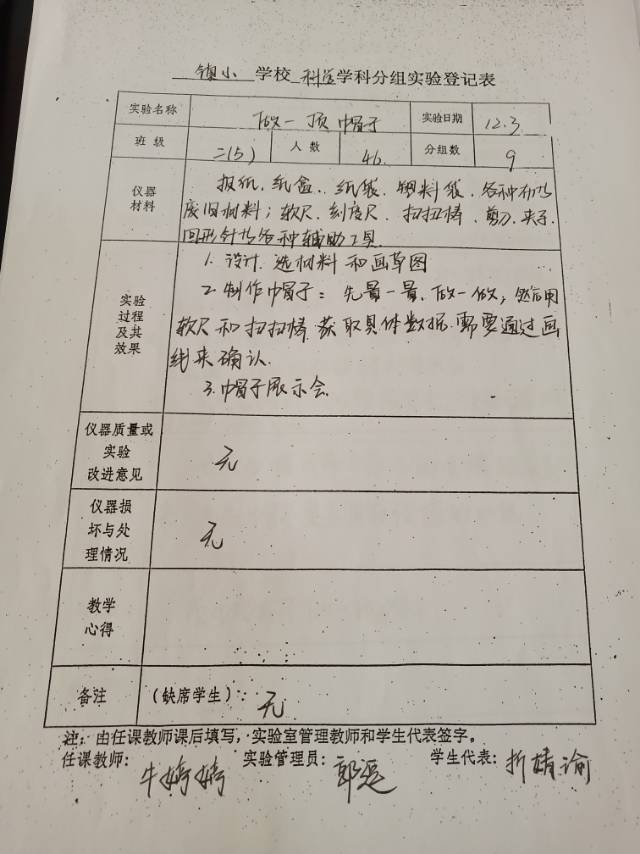 镇小 学校 科学 学科分组实验登记表
实验名称 做一顶帽子 实验日期 12.3
班 级 二(5) 人 数 46 分组数 9
仪器材料 报纸、纸盒、纸袋、塑料袋、各种布料等
废旧材料；软尺、刻度尺、扭扭棒、剪刀、夹子、
回形针等各种辅助工具.
实验过程及其效果 1. 设计、选材料和画草图
2. 制作帽子：先量一量、做一做，然后用
软尺和扭扭棒获取具体数据.需要通过画
线来确认.
3. 帽子展示会.
仪器质量或实验改进意见 无
仪器损坏与处理情况 无
教学心得
备注 (缺席学生)：无
注：由任课教师课后填写，实验室管理教师和学生代表签字。
任课教师：牛婷婷 实验管理员：郭 学生代表：折婧谕